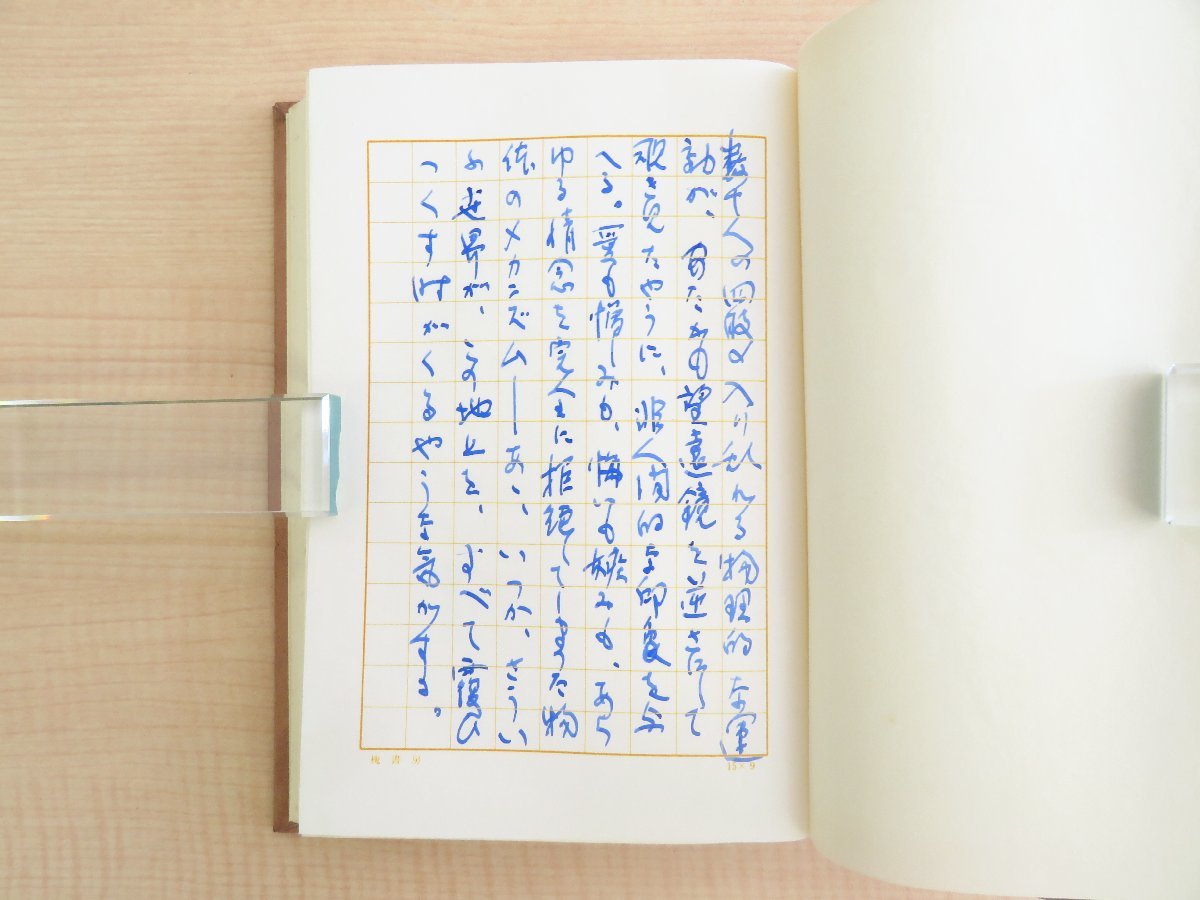 数千人の四肢の入り乱れる物理的な運
動が、あたかも望遠鏡を逆さにして
覗き見たやうに、非人間的な印象を与
へる。愛も憎しみも、悔いも嫉みも、あら
ゆる情念を完全に拒絶してしまつた物
体のメカニズム――あゝ、いつか、さうい
ふ世界が、この地上を、すべて覆ひ
つくす時がくるやうな気がする。
槐書房
15×9